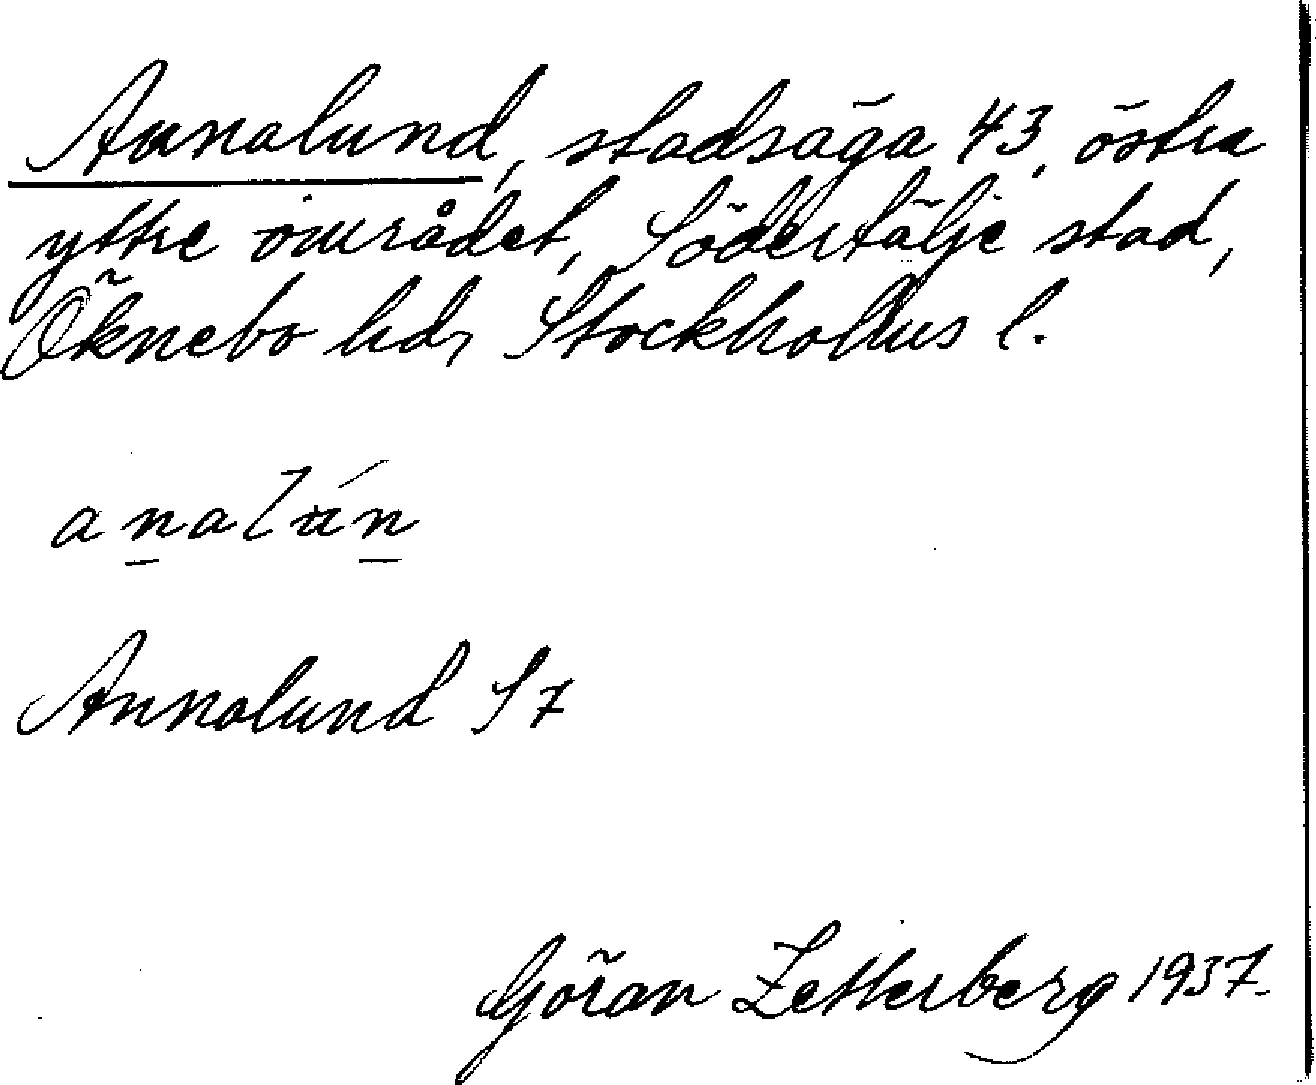 Annalund, stadsäga 43, östra
yttre området, Södertälje stad,
Öknebo hd, Stockholms l.
analún
Annalund S 7
Göran Zetterberg 1937.